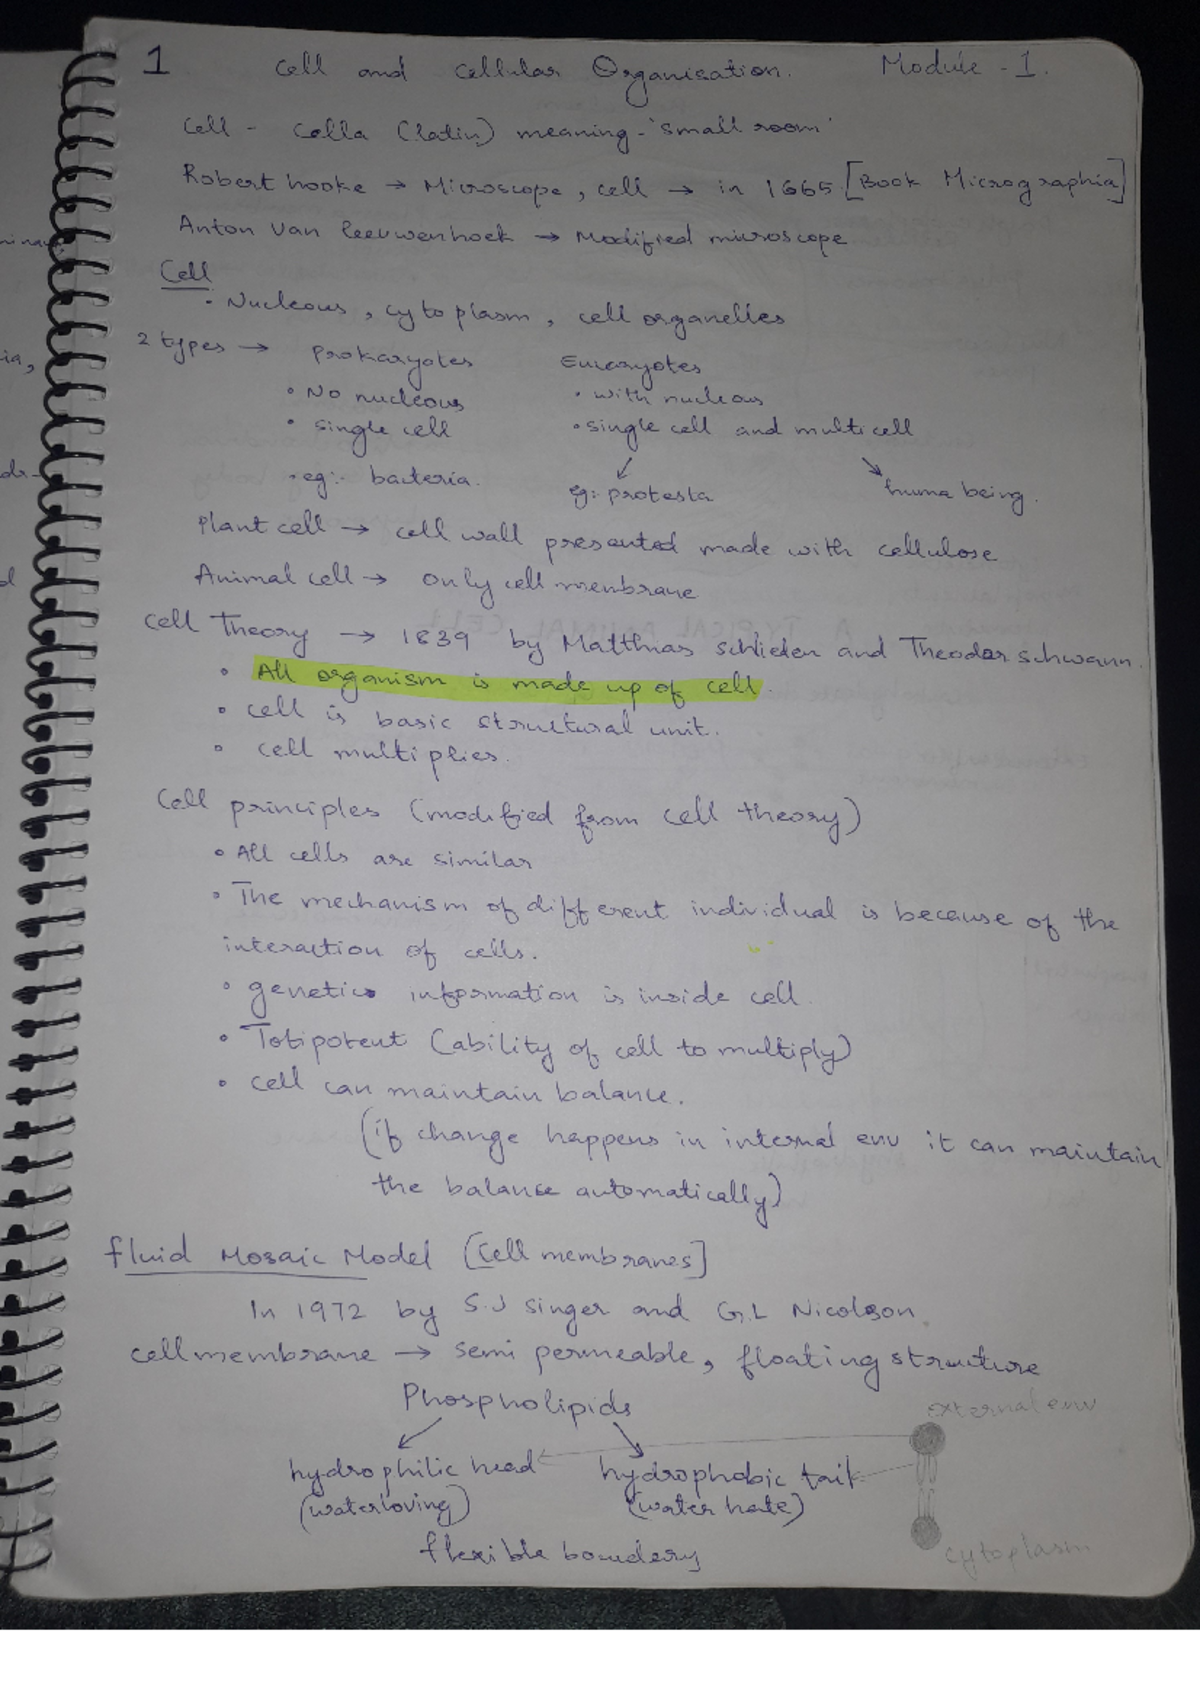 1 Cell and Cellular Organisation. Module - 1.
Cell - Cella (latin) meaning - 'small room'
Robert hooke → Microscope, cell → in 1665 [Book Micrographia]
Anton Van leeuwenhoek → Modified microscope
Cell
• Nucleous, cytoplasm, cell organelles
2 types → Prokaryotes Eucaryotes
• No nucleous • with nucleous
• single cell • single cell and multicell
• eg:- bacteria. eg: protesta huma being.
Plant cell → cell wall presented made with cellulose
Animal cell → only cell membrane
Cell Theory → 1839 by Matthias schlieden and Theodor schwann.
• All organism is made up of cell.
• cell is basic structural unit.
• cell multiplies.
Cell principles (modified from cell theory)
• All cells are similar
• The mechanism of different individual is because of the
interaction of cells.
• genetic information is inside cell.
• Totipotent (ability of cell to multiply)
• cell can maintain balance.
(if change happens in internal env it can maintain
the balance automatically)
fluid Mosaic Model [Cell membranes]
In 1972 by S.J Singer and G.L Nicolson.
cell membrane → semi permeable, floating structure
Phospholipids external env
hydrophilic head hydrophobic tail
(waterloving) (water hate)
flexible boundery cytoplasm